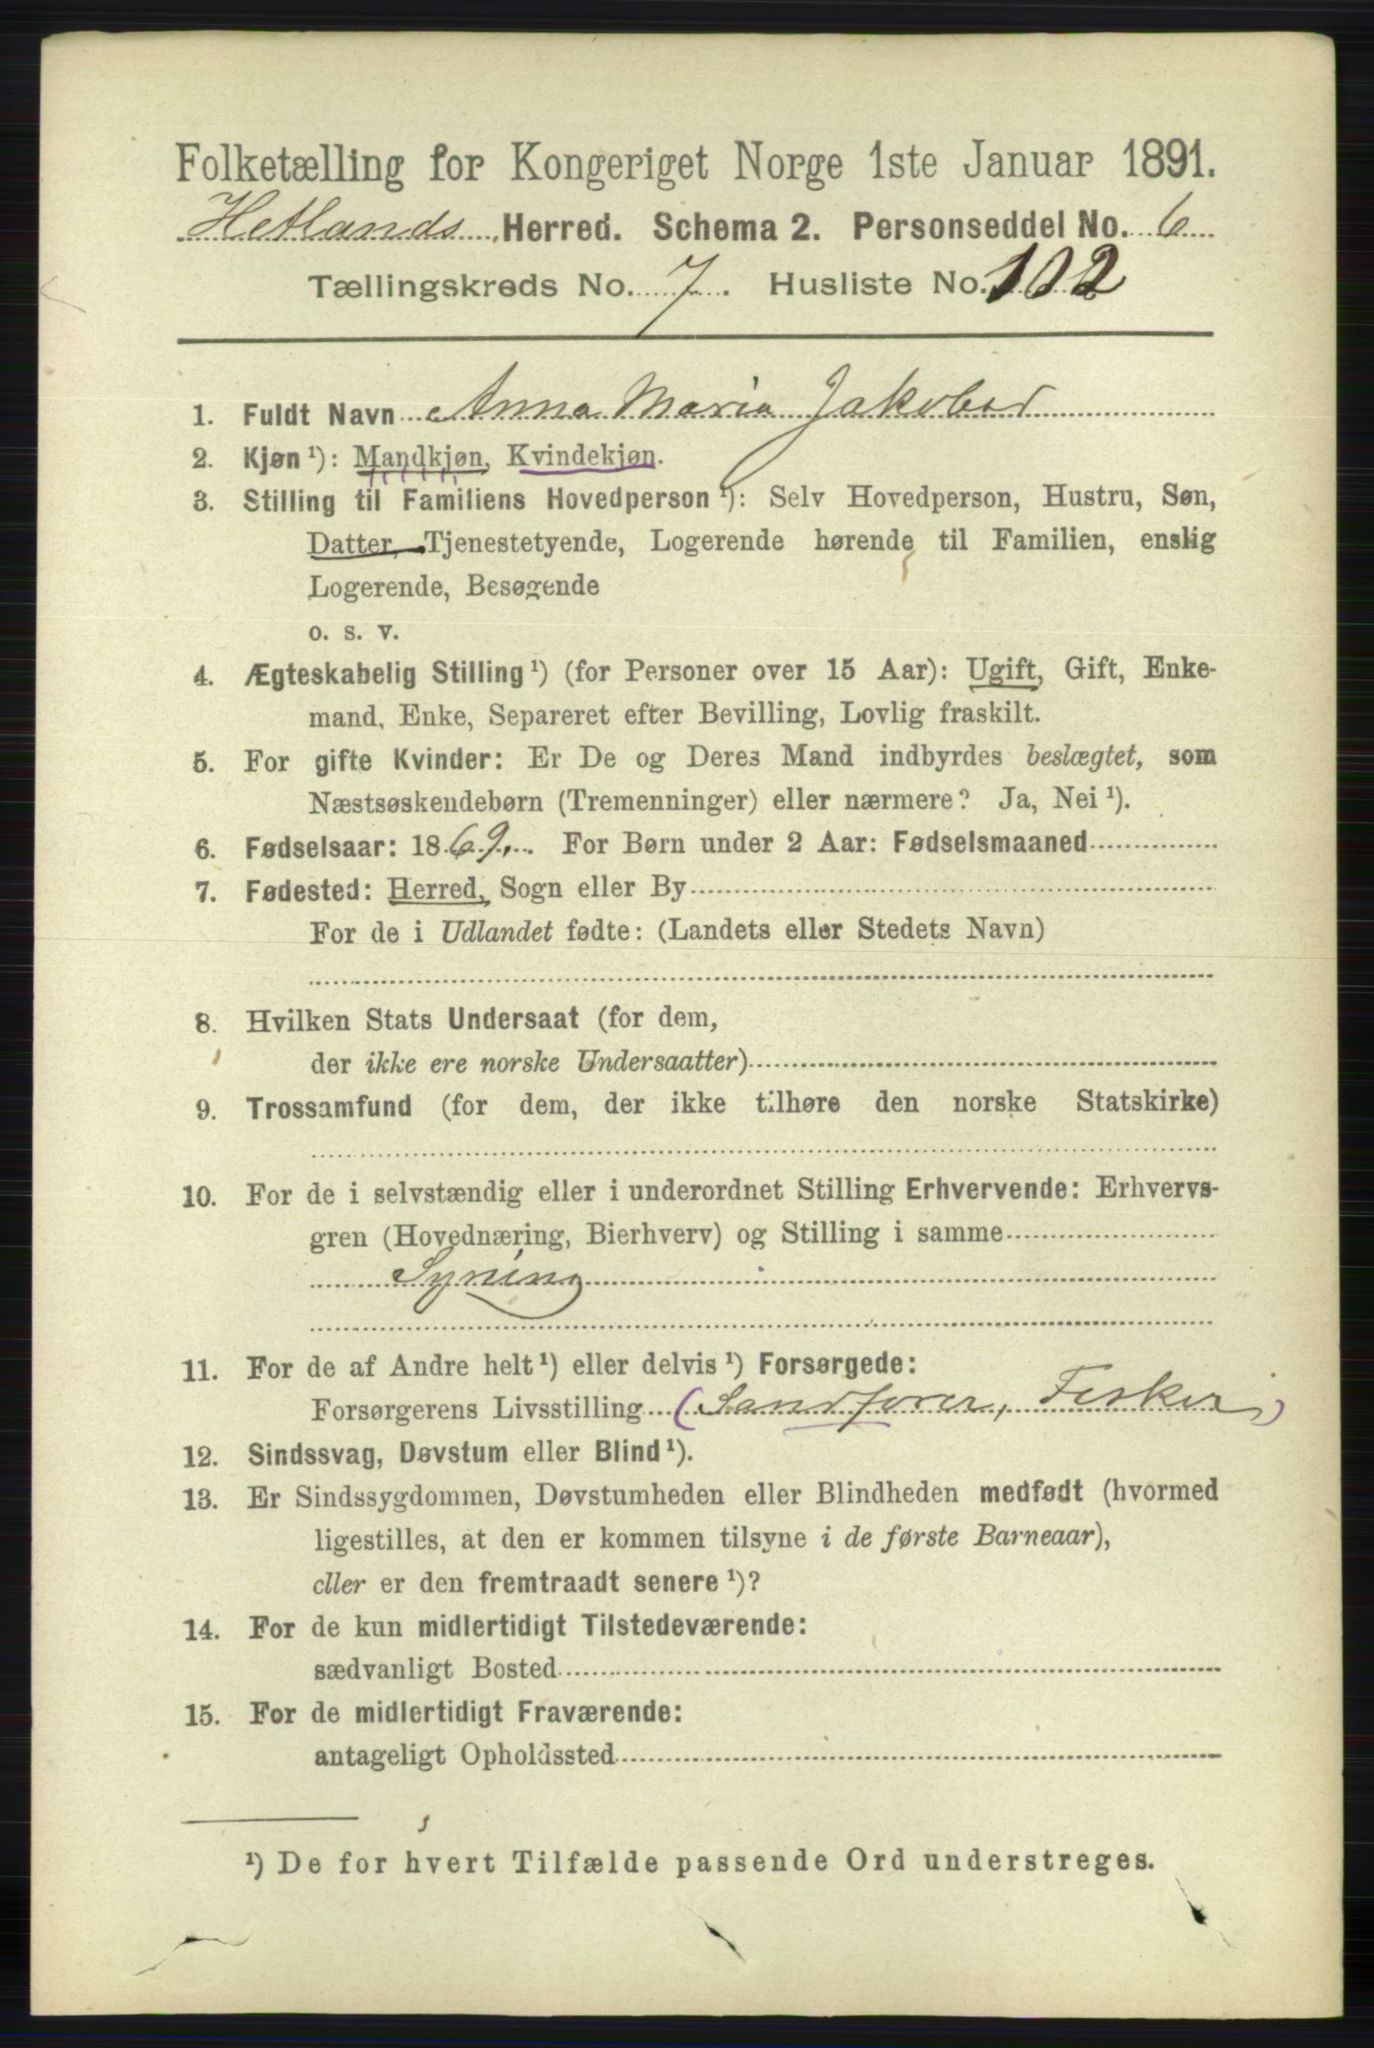 Folketælling for Kongeriget Norge 1ste Januar 1891.
Hetlands Herred. Schema 2. Personseddel No. 6
Tællingskreds No. 7. Husliste No. 102
1. Fuldt Navn Anna Maria Jakobsd
2. Kjøn¹): Mandkjøn, Kvindekjøn.
3. Stilling til Familiens Hovedperson¹): Selv Hovedperson, Hustru, Søn,
Datter, Tjenestetyende, Logerende hørende til Familien, enslig
Logerende, Besøgende
o. s. v.
4. Ægteskabelig Stilling¹) (for Personer over 15 Aar): Ugift, Gift, Enke-
mand, Enke, Separeret efter Bevilling, Lovlig fraskilt.
5. For gifte Kvinder: Er De og Deres Mand indbyrdes beslægtet, som
Næstsøskendebørn (Tremenninger) eller nærmere? Ja, Nei¹).
6. Fødselsaar: 1869. For Børn under 2 Aar: Fødselsmaaned
7. Fødested: Herred, Sogn eller By
For de i Udlandet fødte: (Landets eller Stedets Navn)
8. Hvilken Stats Undersaat (for dem,
der ikke ere norske Undersaatter)
9. Trossamfund (for dem, der ikke tilhøre den norske Statskirke)
10. For de i selvstændig eller i underordnet Stilling Erhvervende: Erhvervs-
gren (Hovednæring, Bierhverv) og Stilling i samme
Syning
11. For de af Andre helt¹) eller delvis¹) Forsørgede:
Forsørgerens Livsstilling (Sandfører, Fisker)
12. Sindssvag, Døvstum eller Blind¹).
13. Er Sindssygdommen, Døvstumheden eller Blindheden medfødt (hvormed
ligestilles, at den er kommen tilsyne i de første Barneaar),
eller er den fremtraadt senere¹)?
14. For de kun midlertidigt Tilstedeværende:
sædvanligt Bosted
15. For de midlertidigt Fraværende:
antageligt Opholdssted
¹) De for hvert Tilfælde passende Ord understreges.